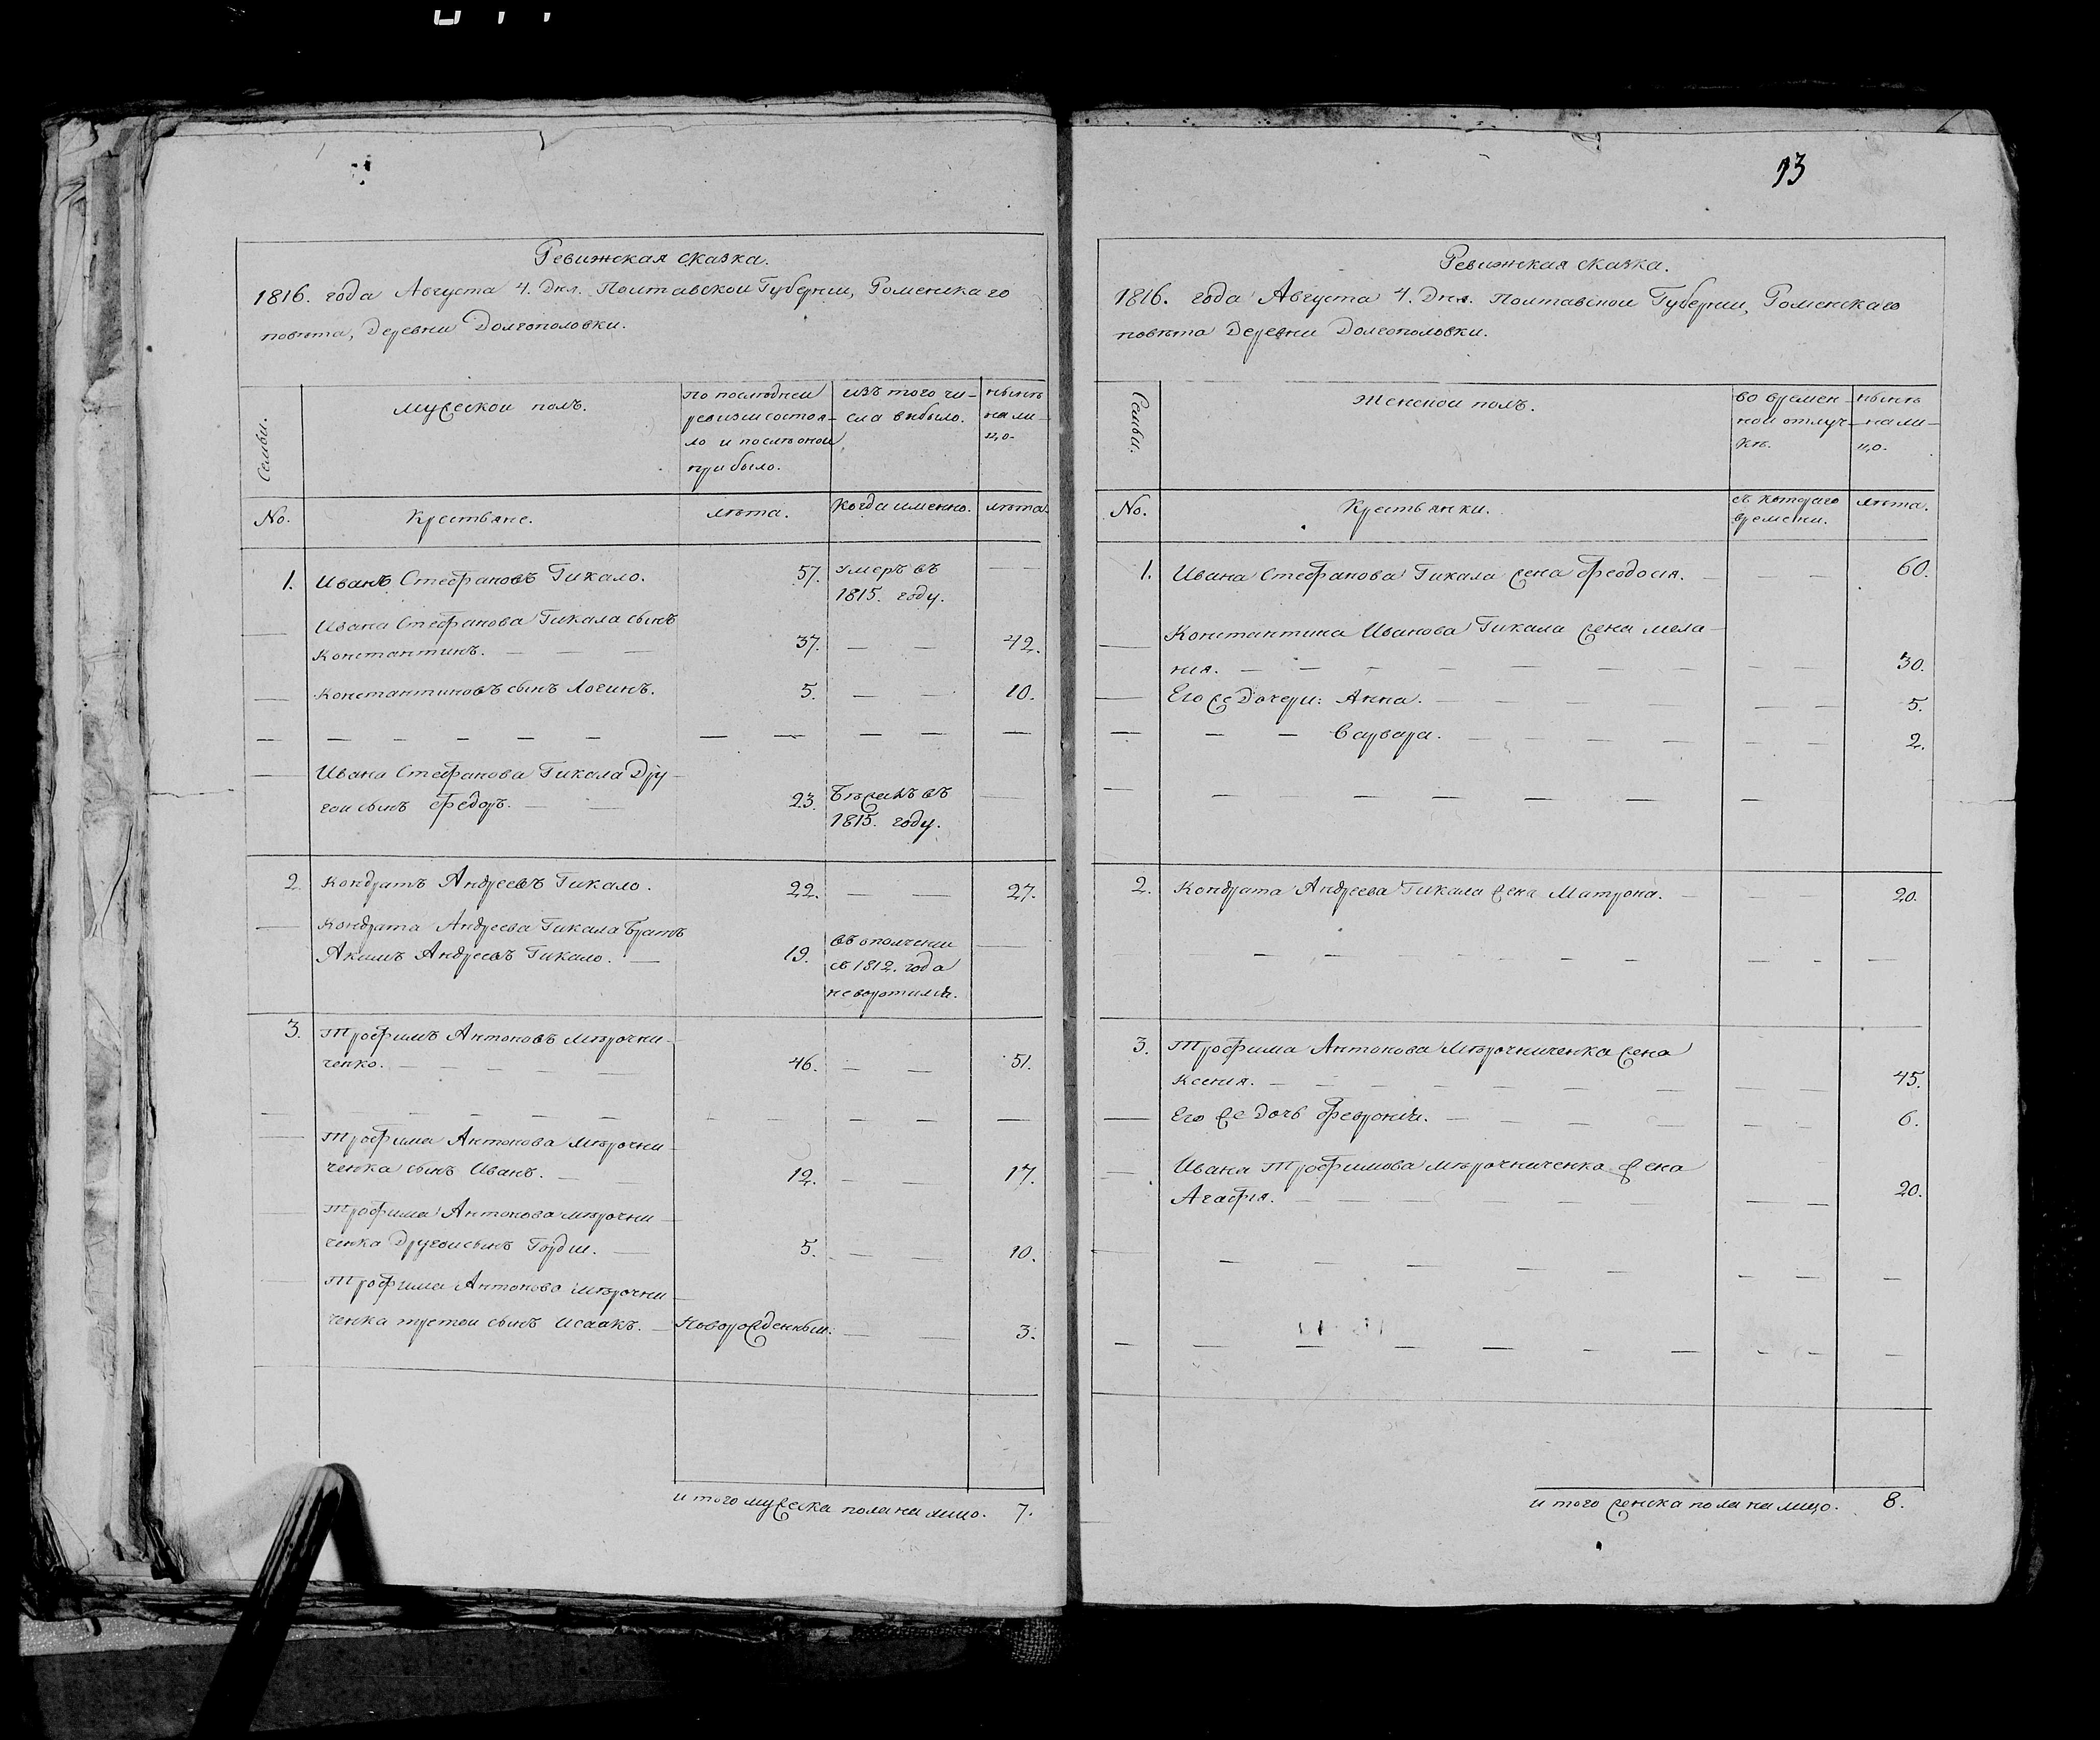 Ревижская сказка.
1816. года Августа 4. Дня. Полтавской Губернии, Роменскаго
повѣта, Деревни Долгополовки.
Семьи.
мужеской полъ.
по последней
ревизии состоя-
ло и послѣ оной
прибыло.
изъ того чи-
сла выбыло.
нынѣ
на ли-
цо.
No.
Крестьяне.
лѣта.
Когда именно.
лѣта.
1. Иванъ Стефановъ Гикало. 57. умеръ въ
1815. году.
Ивана Стефанова Гикала сынъ
Константинъ. 37. 42.
Константиновъ сынъ Логинъ. 5. 10.
Ивана Стефанова Гикала Дру-
гой сынъ Федоръ. 23. Бежалъ въ
1815. году.
2. Кондратъ Андреевъ Гикало. 22. 27.
Кондрата Андреева Гикала Братъ
Акимъ Андреевъ Гикало. 19. въ ополчении
съ 1812. года
неворотился.
3. Трофимъ Антоновъ Мѣрочни-
ченко. 46. 51.
Трофима Антонова Мѣрочни-
ченка сынъ Иванъ. 12. 17.
Трофима Антонова Мѣрочни-
ченка Другой сынъ Гордей. 5. 10.
Трофима Антонова Мѣрочни-
ченка третой сынъ Исаакъ. Новорожденный. 3.
и того мужеска пола на лицо. 7.
13
Ревижская сказка.
1816. года Августа 4. Дня. Полтавской Губернии, Роменскаго
повѣта Деревни Долгополовки.
Семьи.
Женской полъ.
во времен-
ной отлуч-
кѣ.
нынѣ
на ли-
цо.
No.
Крестьянки.
съ котораго
времени.
лѣта.
1. Ивана Стефанова Гикала жена Феодосия. 60.
Константина Иванова Гикала жена Мела-
ния. 30.
Его же Дочери: Анна. 5.
Варвара. 2.
2. Кондрата Андреева Гикала жена Матрона. 20.
3. Трофима Антонова Мѣрочниченка жена
Ксения. 45.
Его же Дочь Феврония. 6.
Ивана Трофимова Мѣрочниченка жена
Агафия. 20.
и того женска пола на лицо. 8.